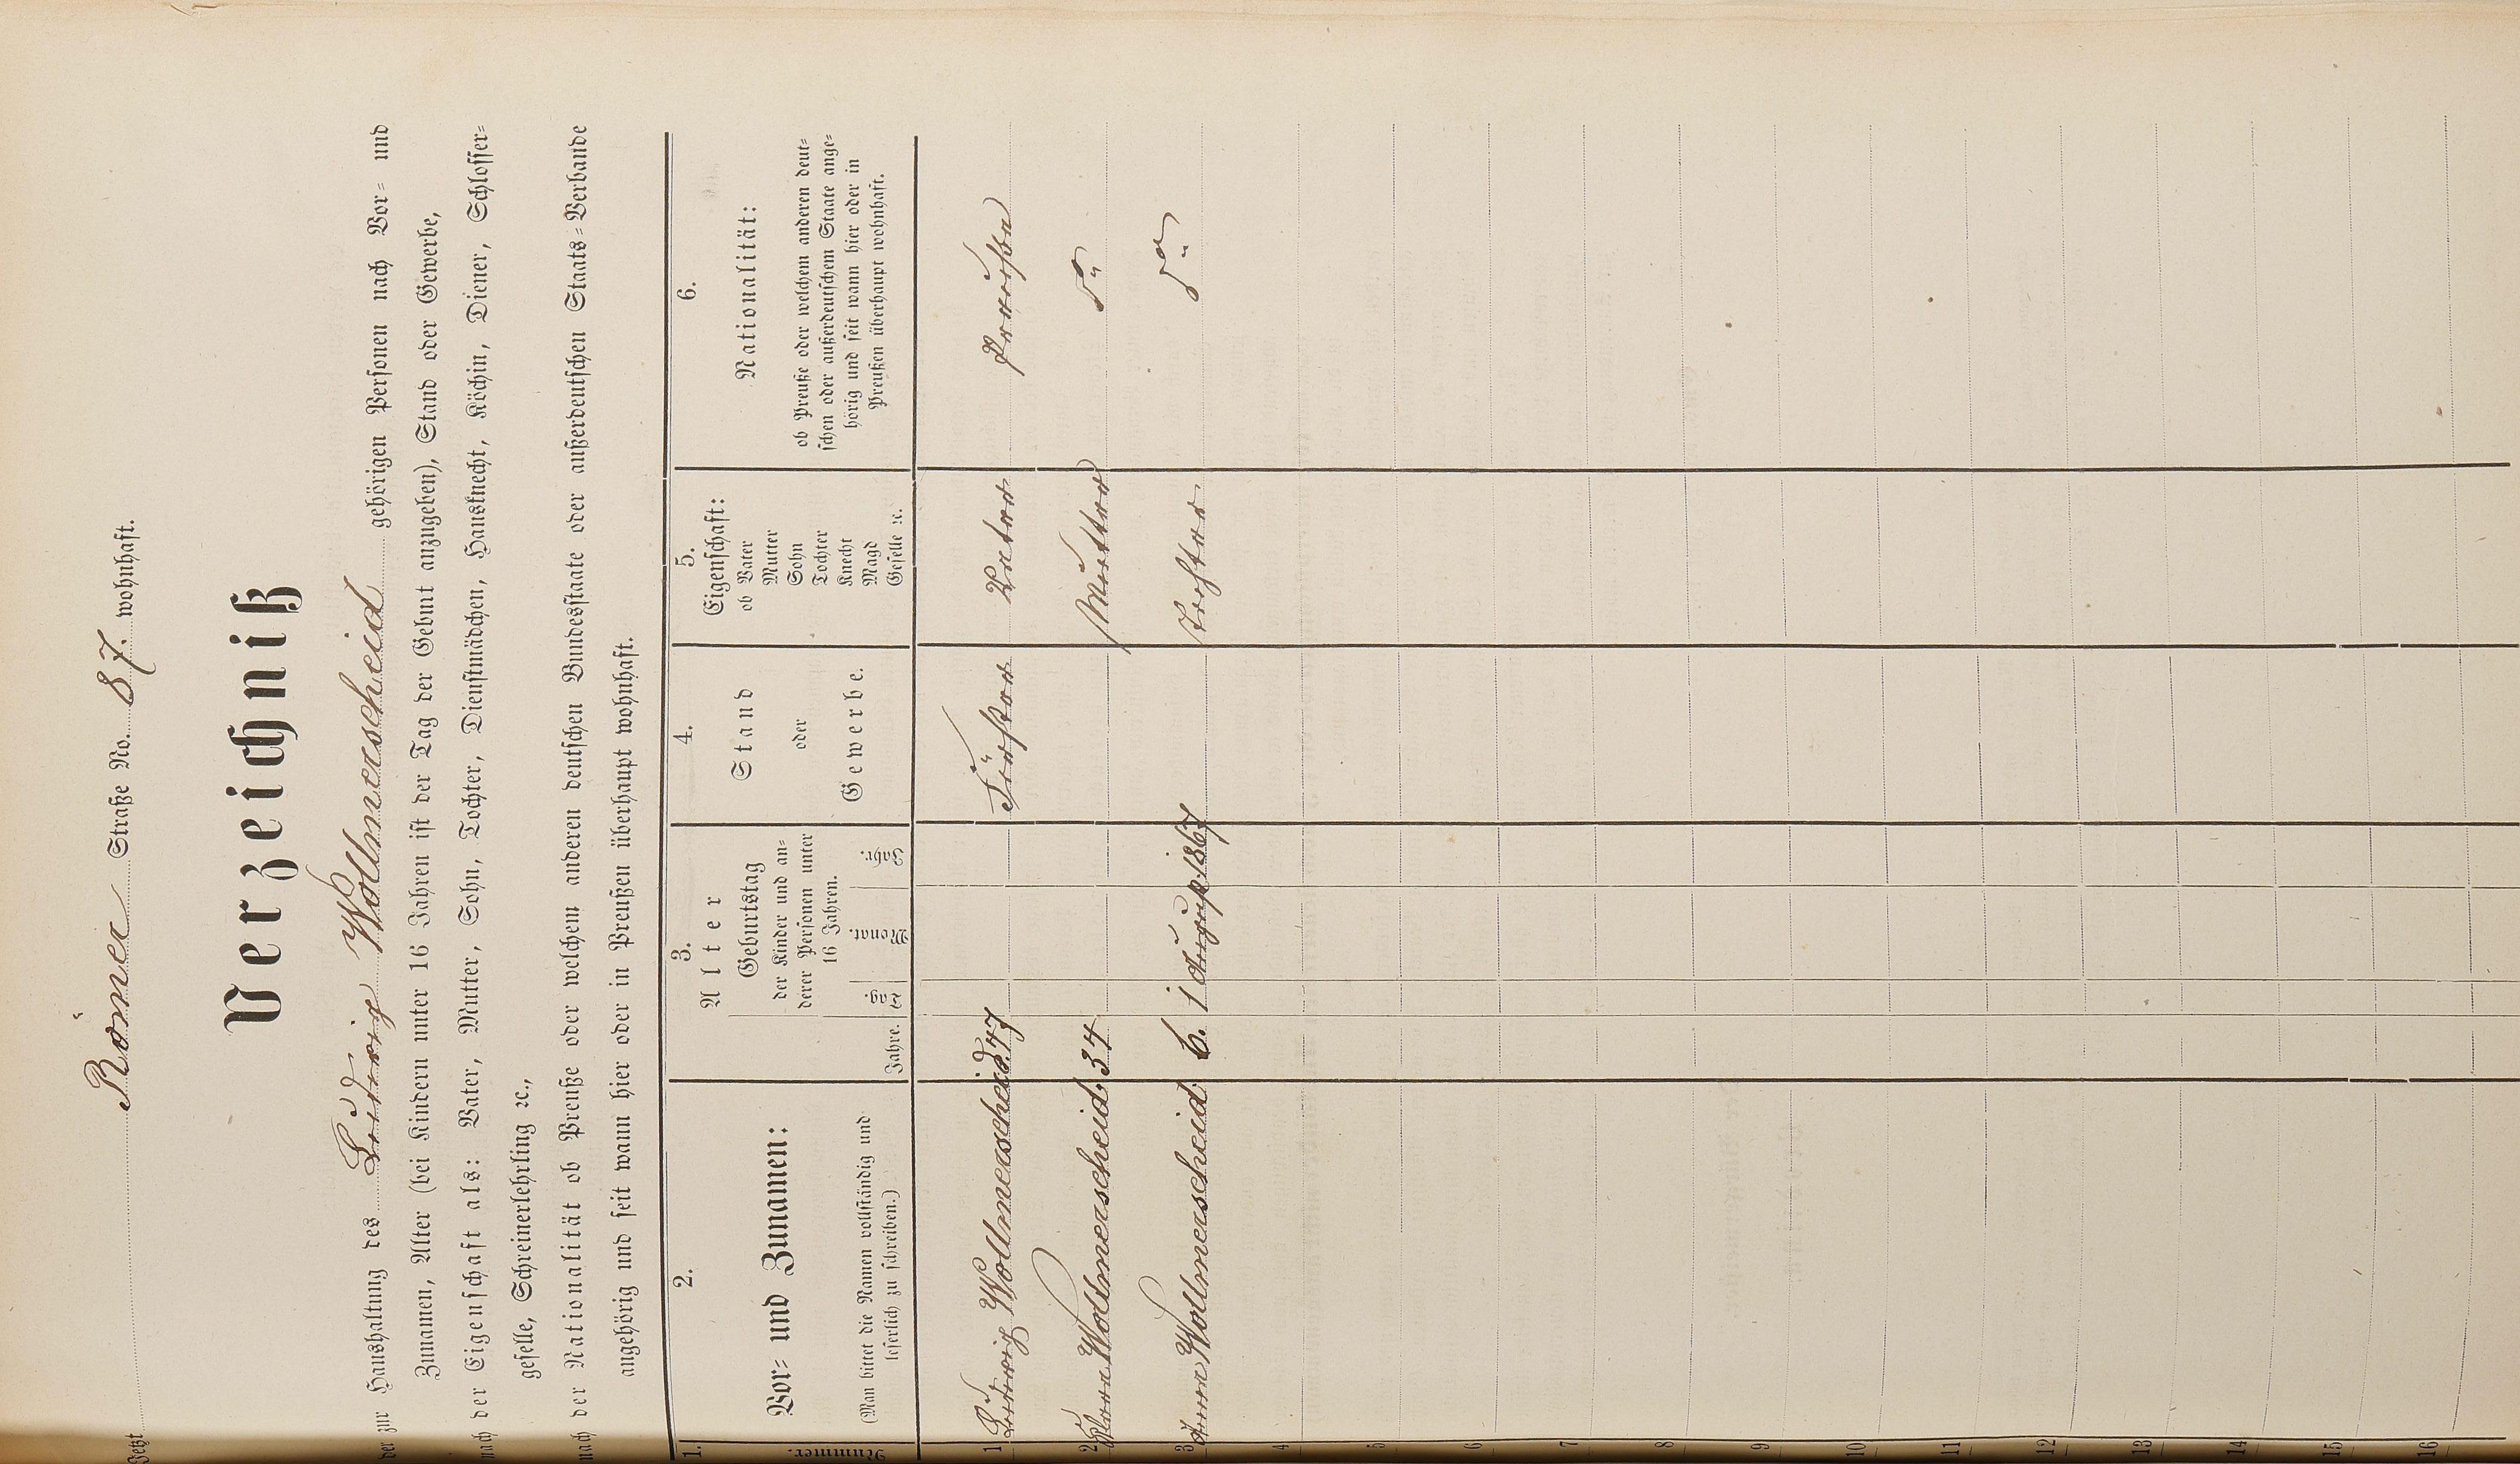 Jetzt Römer Straße No. 87. wohnhaft.
Verzeichniß
der zur Haushaltung des Ludwig Wollmerscheid gehörigen Personen nach Vor- und
Zunamen, Alter (bei Kindern unter 16 Jahren ist der Tag der Geburt anzugeben), Stand oder Gewerbe,
nach der Eigenschaft als: Vater, Mutter, Sohn, Tochter, Dienstmädchen, Hausknecht, Köchin, Diener, Schlosser-
geselle, Schreinerlehrling ꝛc.,
nach der Nationalität ob Preuße oder welchem anderen deutschen Bundesstaate oder außerdeutschen Staats-Verbande
angehörig und seit wann hier oder in Preußen überhaupt wohnhaft.
1.
Nummer.
2.
Vor- und Zunamen:
(Man bittet die Namen vollständig und
leserlich zu schreiben.)
3.
Alter
Jahre.
Geburtstag
der Kinder und an-
derer Personen unter
16 Jahren.
Tag. Monat. Jahr.
4.
Stand
oder
Gewerbe.
5.
Eigenschaft:
ob Vater
Mutter
Sohn
Tochter
Knecht
Magd
Geselle ꝛc.
6.
Nationalität:
ob Preuße oder welchem anderen deut-
schen oder außerdeutschem Staate ange-
hörig und seit wann hier oder in
Preußen überhaupt wohnhaft.
1 Ludwig Wollmerscheid. 47 Förster Vater Preuße
2 Wollmerscheid. 34 Mutter do
3 Anna Wollmerscheid. 6. 1 August. 1867 Tochter do
4
5
6
7
8
9
10
11
12
13
14
15
16